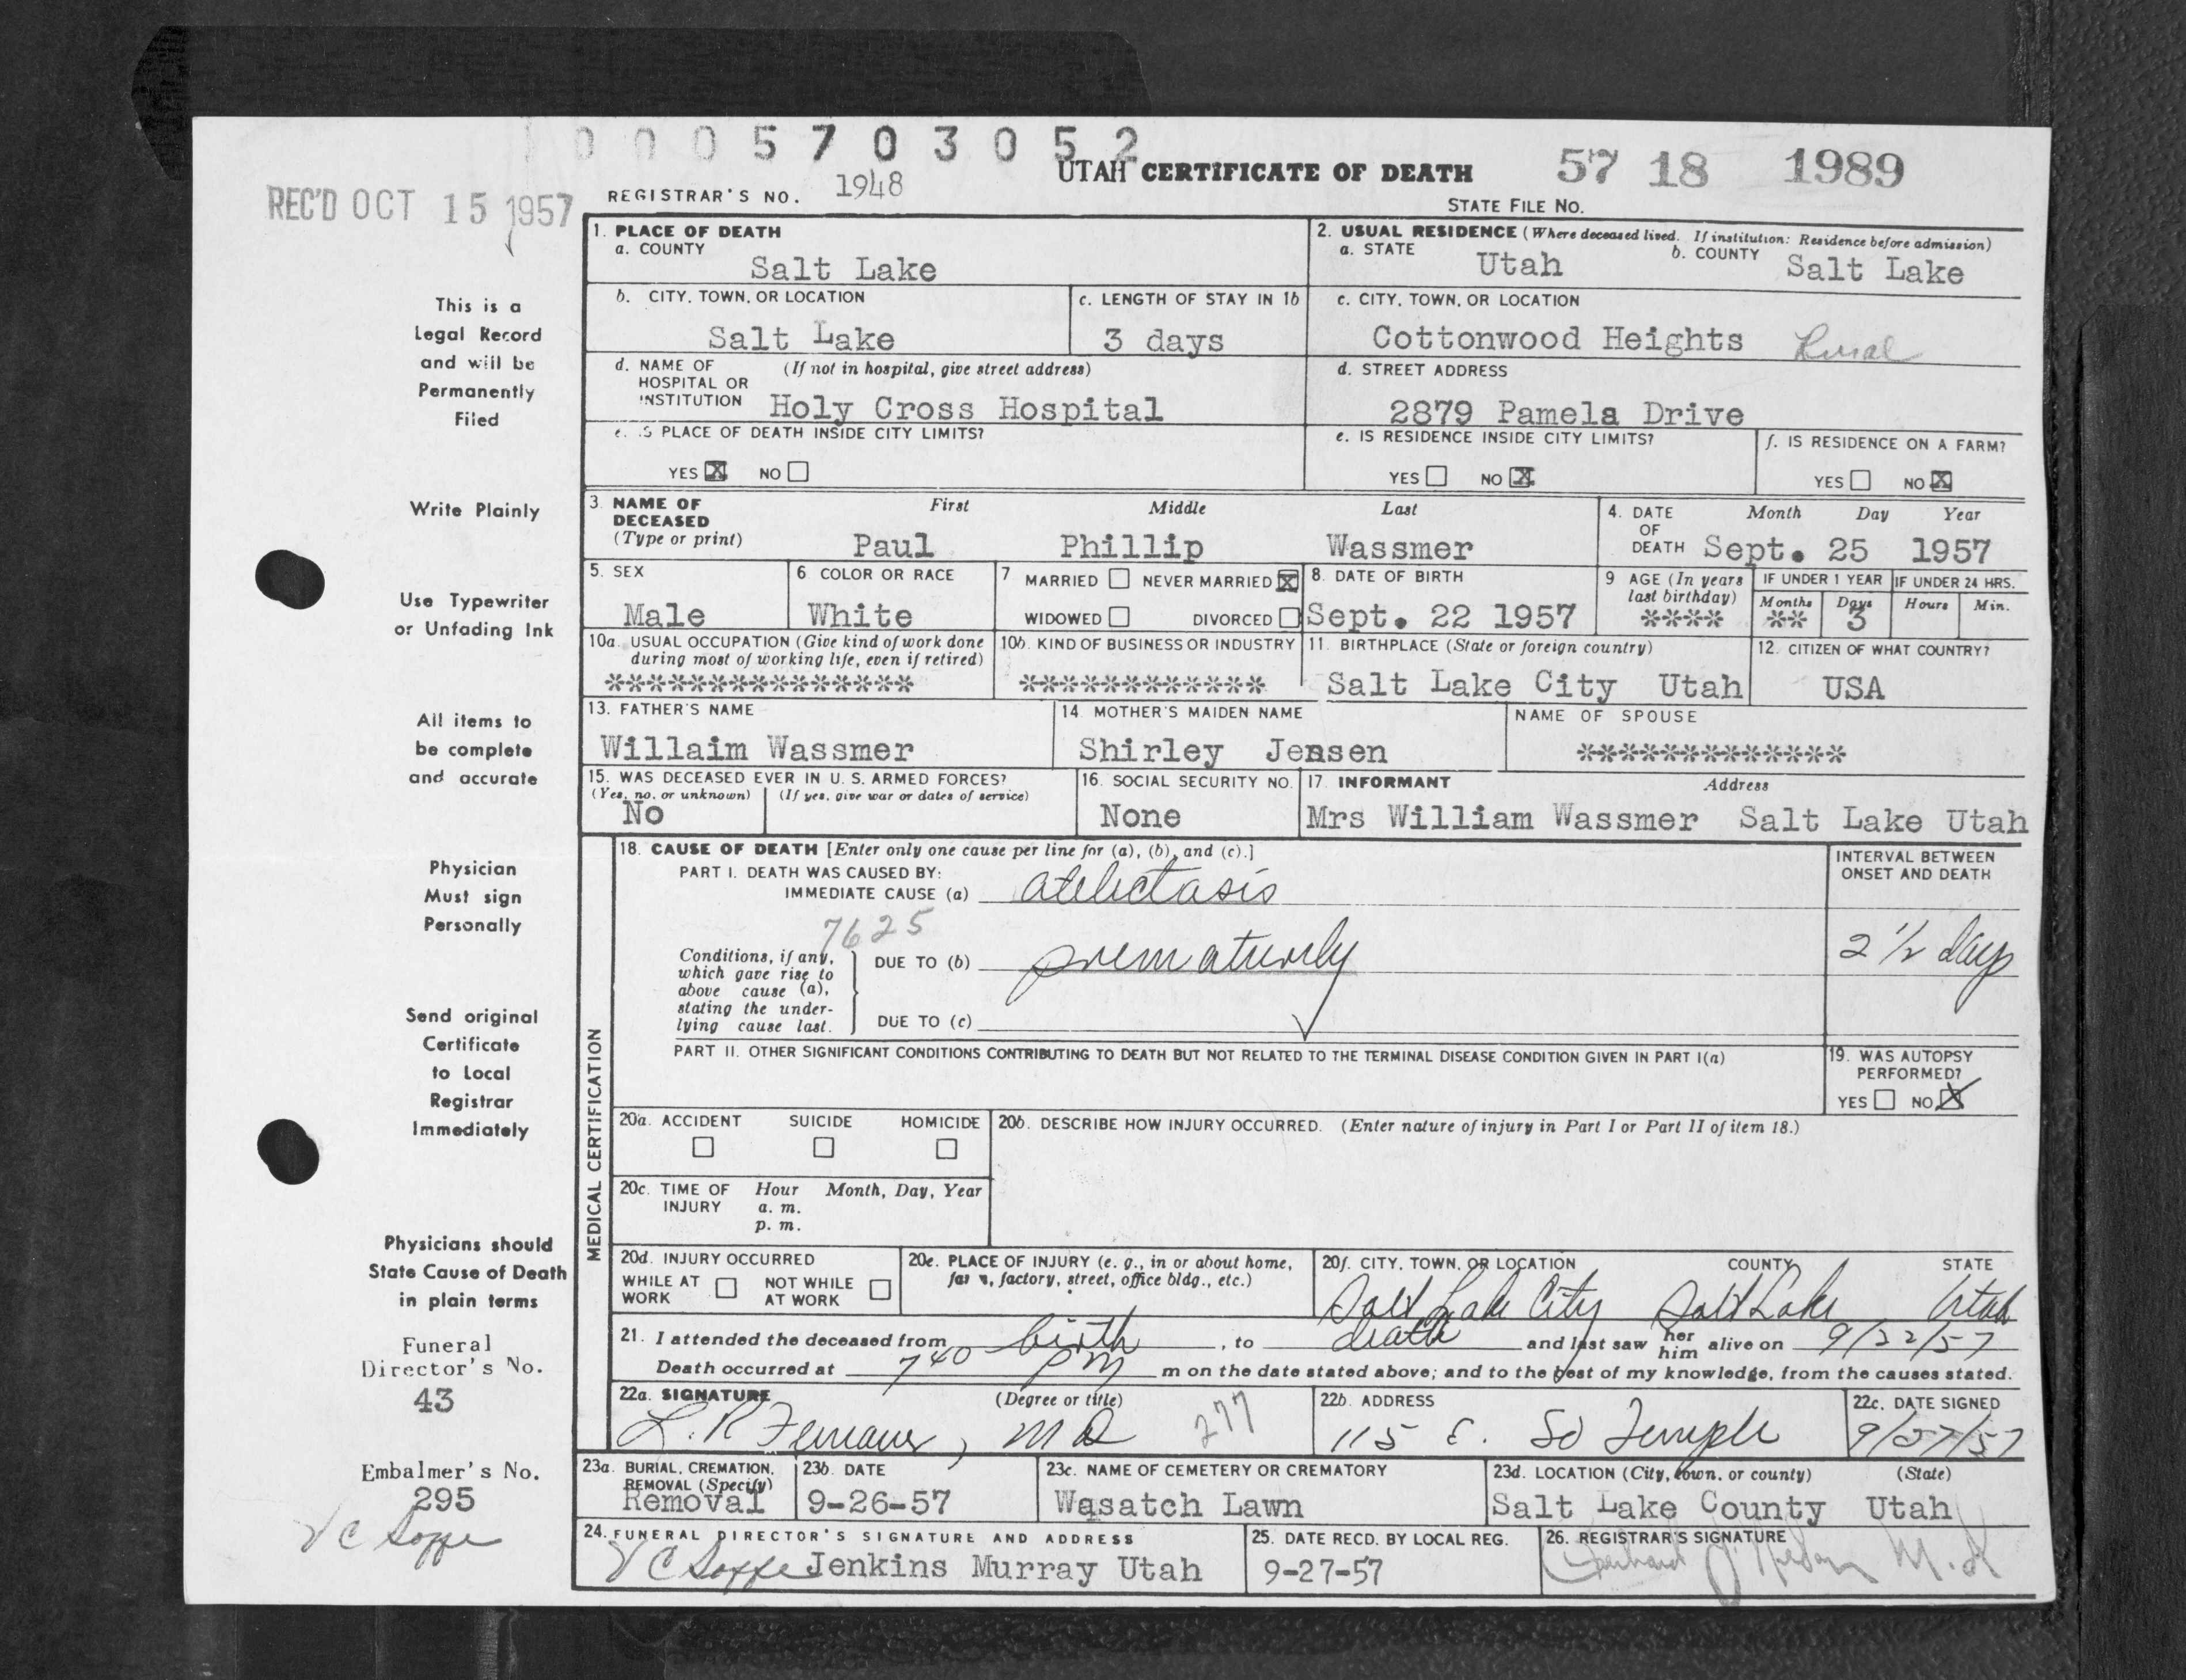 0005703052
UTAH CERTIFICATE OF DEATH 57 18 1989
REC'D OCT 15 1957
REGISTRAR'S NO. 1948
STATE FILE NO.
1. PLACE OF DEATH
a. COUNTY
Salt Lake
2. USUAL RESIDENCE (Where deceased lived. If institution: Residence before admission)
a. STATE Utah b. COUNTY Salt Lake
b. CITY, TOWN, OR LOCATION
Salt Lake
c. LENGTH OF STAY IN 1b
3 days
c. CITY, TOWN, OR LOCATION
Cottonwood Heights Rural
d. NAME OF HOSPITAL OR INSTITUTION (If not in hospital, give street address)
Holy Cross Hospital
d. STREET ADDRESS
2879 Pamela Drive
e. IS PLACE OF DEATH INSIDE CITY LIMITS?
YES X NO
e. IS RESIDENCE INSIDE CITY LIMITS?
YES NO X
f. IS RESIDENCE ON A FARM?
YES NO X
3. NAME OF DECEASED (Type or print)
First Middle Last
Paul Phillip Wassmer
4. DATE OF DEATH Month Day Year
Sept. 25 1957
5. SEX
Male
6 COLOR OR RACE
White
7 MARRIED NEVER MARRIED X
WIDOWED DIVORCED
8. DATE OF BIRTH
Sept. 22 1957
9 AGE (In years last birthday)
****
IF UNDER 1 YEAR
Months Days
** 3
IF UNDER 24 HRS.
Hours Min.
10a. USUAL OCCUPATION (Give kind of work done during most of working life, even if retired)
***************
10b. KIND OF BUSINESS OR INDUSTRY
************
11. BIRTHPLACE (State or foreign country)
Salt Lake City Utah
12. CITIZEN OF WHAT COUNTRY?
USA
13. FATHER'S NAME
Willaim Wassmer
14. MOTHER'S MAIDEN NAME
Shirley Jensen
NAME OF SPOUSE
*************
15. WAS DECEASED EVER IN U. S. ARMED FORCES?
(Yes, no, or unknown) (If yes, give war or dates of service)
No
16. SOCIAL SECURITY NO.
None
17. INFORMANT Address
Mrs William Wassmer Salt Lake Utah
MEDICAL CERTIFICATION
18. CAUSE OF DEATH [Enter only one cause per line for (a), (b), and (c).]
PART I. DEATH WAS CAUSED BY:
IMMEDIATE CAUSE (a) atelectasis
INTERVAL BETWEEN ONSET AND DEATH
7625
Conditions, if any, which gave rise to above cause (a), stating the underlying cause last.
DUE TO (b) prematurely
2 1/2 days
DUE TO (c)
PART II. OTHER SIGNIFICANT CONDITIONS CONTRIBUTING TO DEATH BUT NOT RELATED TO THE TERMINAL DISEASE CONDITION GIVEN IN PART I(a)
19. WAS AUTOPSY PERFORMED?
YES NO X
20a. ACCIDENT SUICIDE HOMICIDE
20b. DESCRIBE HOW INJURY OCCURRED. (Enter nature of injury in Part I or Part II of item 18.)
20c. TIME OF INJURY Hour Month, Day, Year
a. m.
p. m.
20d. INJURY OCCURRED
WHILE AT WORK NOT WHILE AT WORK
20e. PLACE OF INJURY (e. g., in or about home, farm, factory, street, office bldg., etc.)
20f. CITY, TOWN, OR LOCATION COUNTY STATE
Salt Lake City Salt Lake Utah
21. I attended the deceased from birth, to death and last saw her him alive on 9/22/57
Death occurred at 7 40 PM m on the date stated above; and to the best of my knowledge, from the causes stated.
22a. SIGNATURE (Degree or title)
L. R. MD 277
22b. ADDRESS
115 E. So Temple
22c. DATE SIGNED
9/27/57
23a. BURIAL, CREMATION, REMOVAL (Specify)
Removal
23b. DATE
9-26-57
23c. NAME OF CEMETERY OR CREMATORY
Wasatch Lawn
23d. LOCATION (City, town, or county) (State)
Salt Lake County Utah
24. FUNERAL DIRECTOR'S SIGNATURE AND ADDRESS
V C Soffe Jenkins Murray Utah
25. DATE RECD. BY LOCAL REG.
9-27-57
26. REGISTRAR'S SIGNATURE
This is a
Legal Record
and will be
Permanently
Filed
Write Plainly
Use Typewriter
or Unfading Ink
All items to
be complete
and accurate
Physician
Must sign
Personally
Send original
Certificate
to Local
Registrar
Immediately
Physicians should
State Cause of Death
in plain terms
Funeral
Director's No.
43
Embalmer's No.
295
V C Soffe